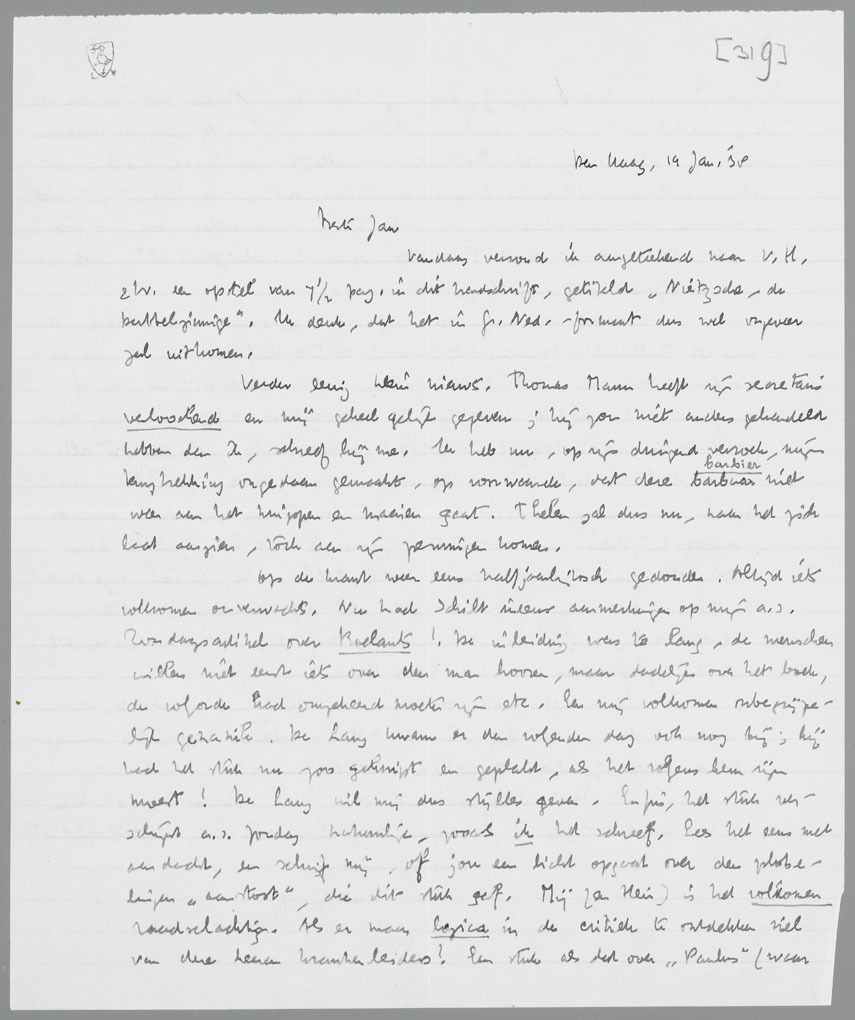 [319]
Den Haag, 19 Jan. '38
Beste Jan
Vandaag verzond ik aangeteekend naar V.H.
z hr. een opstel van 7 1/2 pag. in dit handschrift, getiteld „Nietzsche, de
dubbelzinnige". Ik denk, dat het in Gr. Ned.-formaat dus wel ongeveer
zal uitkomen.
Verder eenig klein nieuws. Thomas Mann heeft zijn secretaris
verloochend en mij geheel gelijk gegeven; hij zou niet anders gehandeld
hebben dan ik, schreef hij me. Ik heb nu, op zijn dringend verzoek, mijn
terugtrekking ongedaan gemaakt, op voorwaarde, dat deze barbaar niet
barbier
weer aan het knippen en maaien gaat. Thelen zal dus nu, naar het zich
laat aanzien, tóch aan zijn penningen komen.
Op de krant weer eens halfjaarlijksch gedonder. Altijd iets
volkomen onverwachts. Nu had Schilt ineens aanmerkingen op mijn a.s.
Zondagsartikel over Roelants! De inleiding was te lang, de menschen
willen niet eerst iets over den man hooren, maar dadelijk over het boek,
de volgorde had omgekeerd moeten zijn etc. Een mij volkomen onbegrijpe-
lijk gezanik. De Lang kwam er den volgenden dag ook nog bij; hij
had het stuk nu zoo geknipt en geplakt, als het volgens hem zijn
moest! De Lang wil mij dus stijlles geven. Enfin, het stuk ver-
schijnt a.s. Zondag natuurlijk, zooals ik het schreef. Lees het eens met
aandacht, en schrijf mij, of jou een licht opgaat over den plotse-
lingen „aanstoot", die dit stuk gaf. Mij (en Hein) is het volkomen
raadselachtig. Als er maar logica in de critiek te ontdekken viel
van deze heeren krantenleiders! Een stuk als dat over „Paulus" (waar